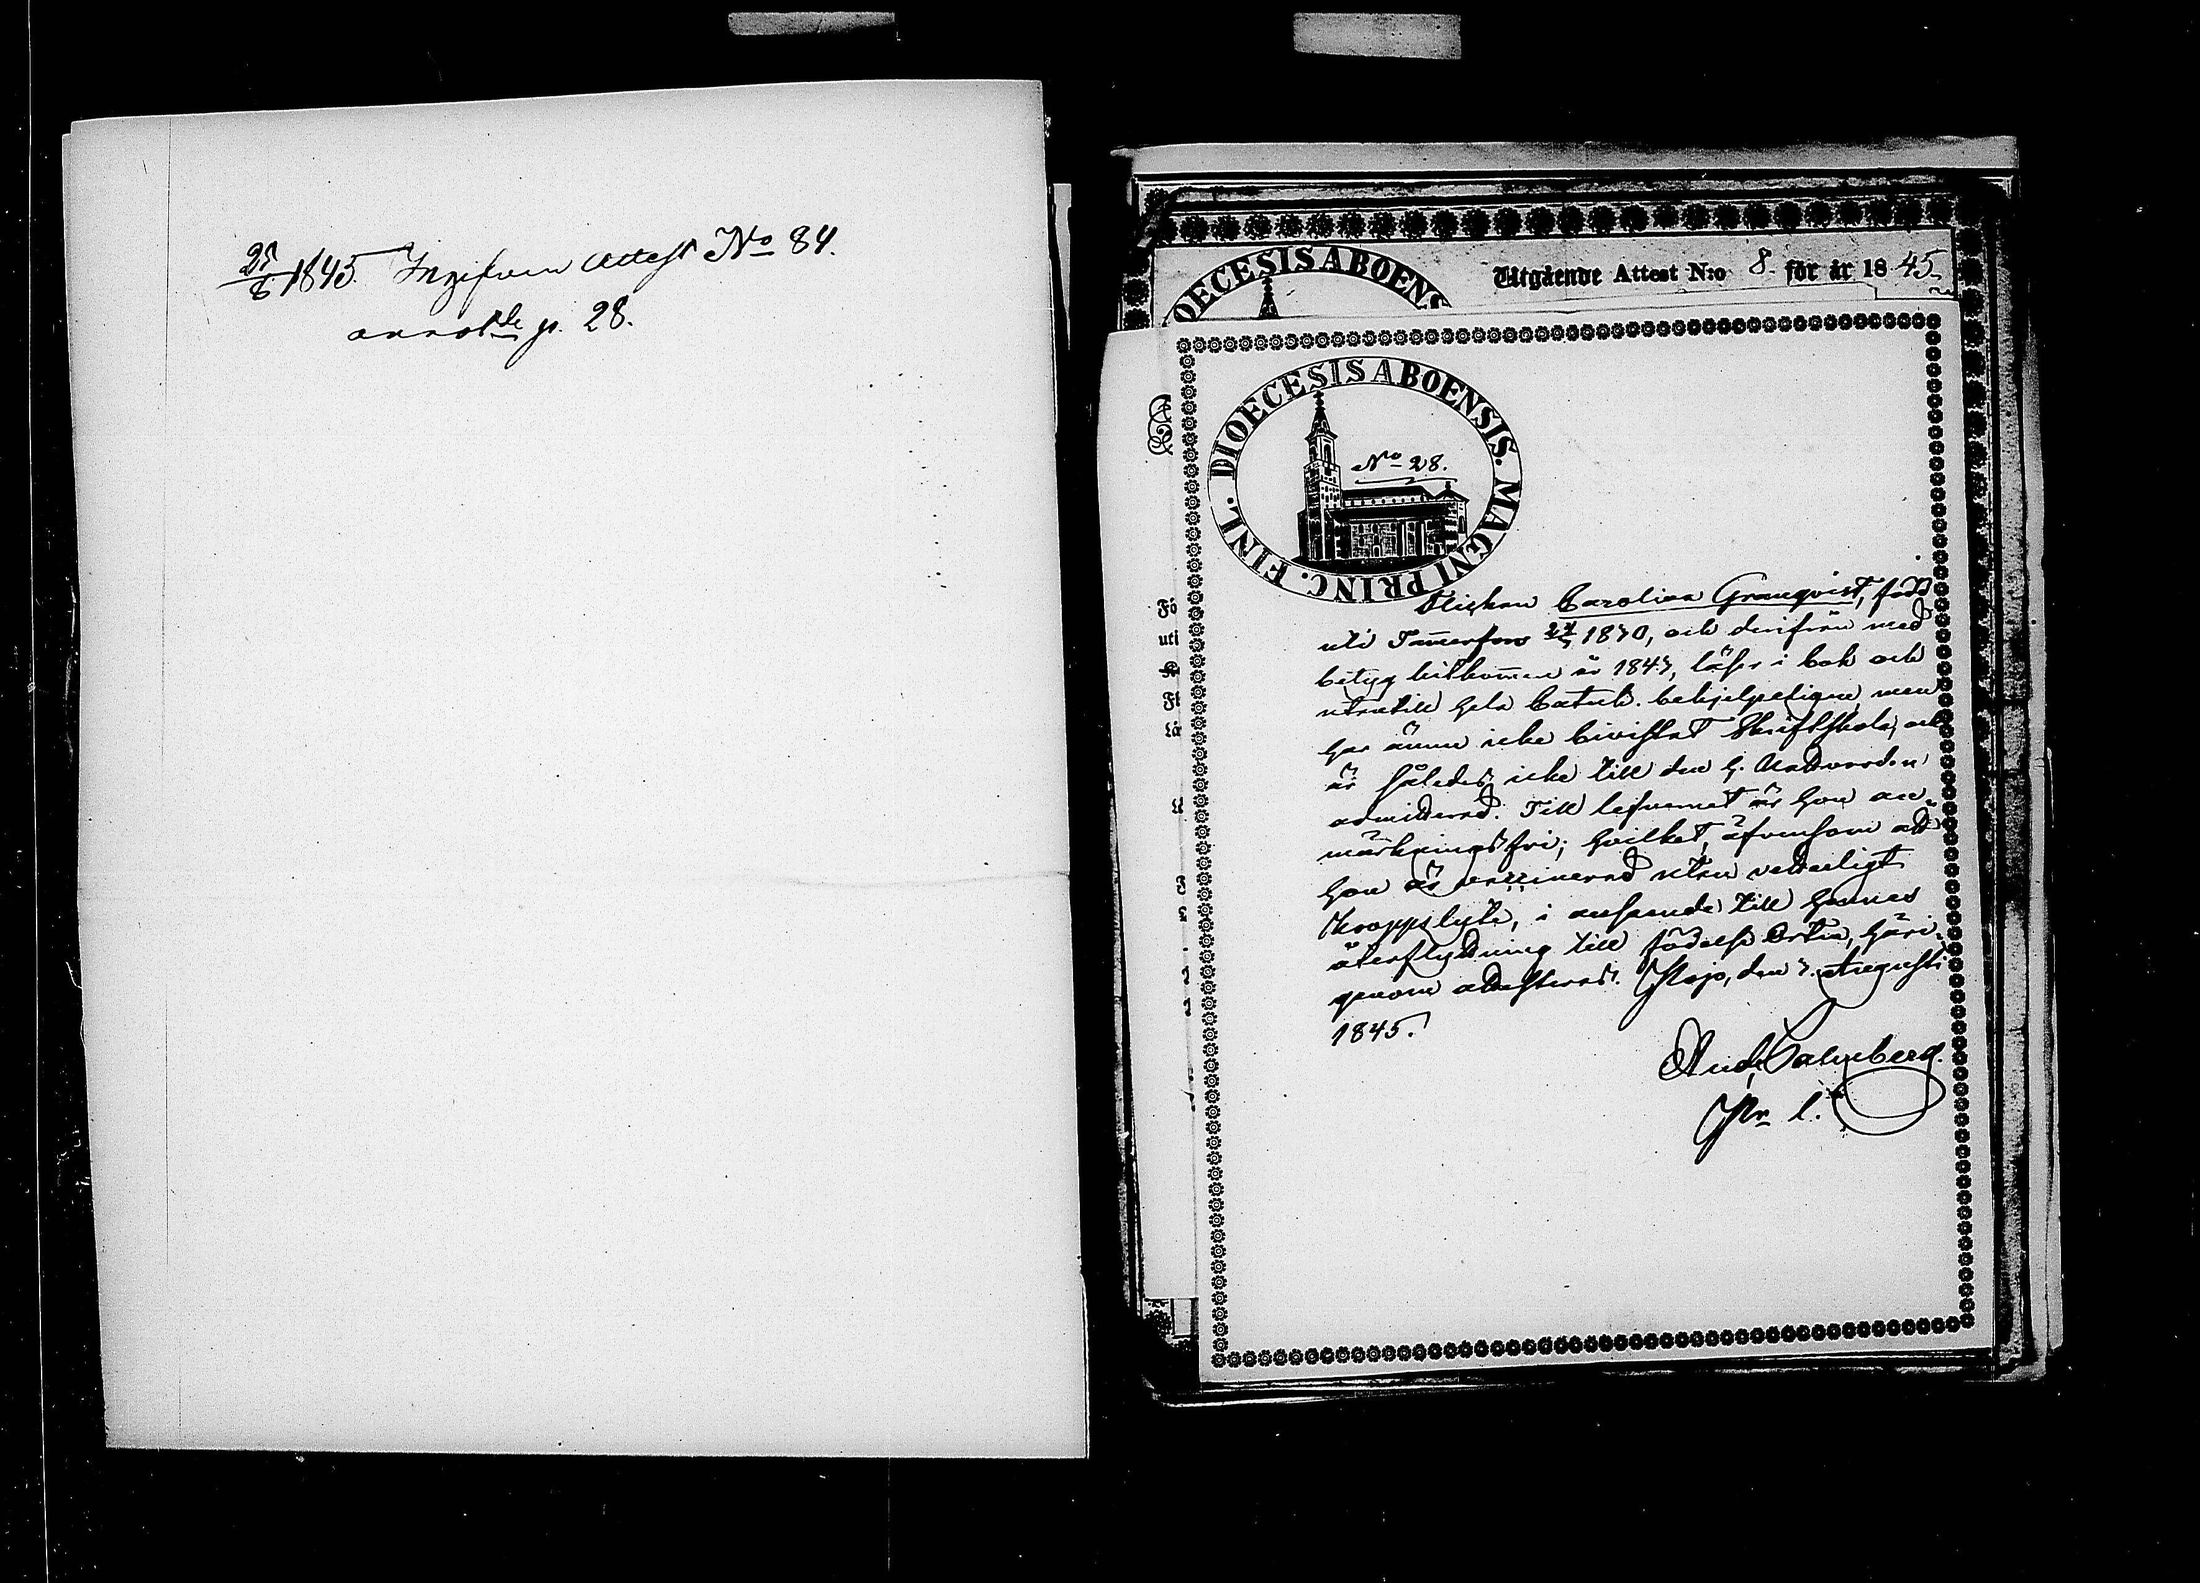 25/8 1845. Ingifven Attest No 84.
annotde p. 28.
Utgående Attest N:o 8. för år 1845.
DIOECESIS ABOENS
DIOECESIS ABOENSIS. MAGNI PRINC. FINL.
No 28.
Flickan Carolina Granqvist, född
uti Tammerfors 1830, och derifrån med
betyg hitkommen år 1843, läser i bok och
utantill hela Catech. behjelpeligen, men
har ännu icke bivistat Skriftskola, och
är således icke till den h. Nattvarden
admitterad. Till lefvernet är hon an-
märkningsfri; hvilket, äfvensom att
hon är vaccinerad utan vetterligt
Kroppslyte, i anseende till hennes
återflyttning till födelse Orten, häri-
genom attesteras. den 3. Augusti
1845.
And. Palmberg.
Fö
uti